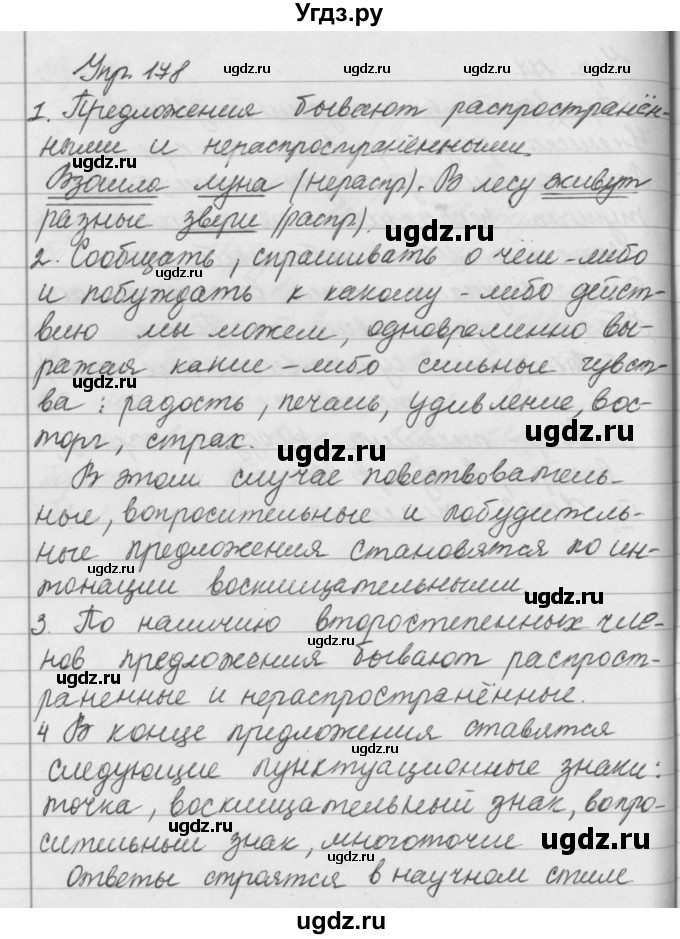 Угдз.ру
Упр. 178
1. Предложения бывают распространён-
ными и нераспространёнными.
Взошла луна (нераспр). В лесу живут
разные звери (распр).
2. Сообщать, спрашивать о чём-либо
и побуждать к какому-либо дейст-
вию мы можем, одновременно вы-
ражая какие-либо сильные чувст-
ва: радость, печаль, удивление, вос-
торг, страх.
В этом случае повествователь-
ные, вопросительные и побудитель-
ные предложения становятся по ин-
тонации восклицательными
3. По наличию второстепенных чле-
нов предложения бывают распрост-
раненные и нераспространённые.
4 В конце предложения ставятся
следующие пунктуационные знаки:
точка, восклицательный знак, вопро-
сительный знак, многоточие
Ответы строятся в научном стиле
ugdz.ru